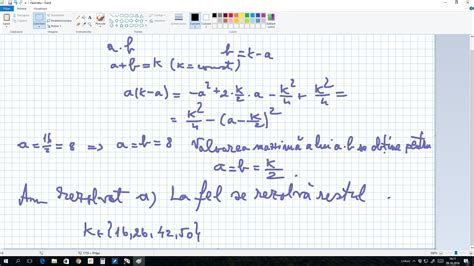 a·b
a+b=k (k=const) b=k-a
a(k-a) = -a²+2·k/2·a - k²/4 + k²/4 =
= k²/4 - (a - k/2)²
a = 16/2 = 8 => a=b=8 Valoarea maximă a lui a·b se obține pentru
a=b=k/2.
Am rezolvat a) La fel se rezolvă restul.
k∈{16,26,42,50}